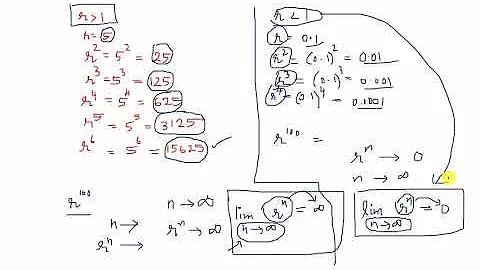 r > 1
r = 5
r² = 5² = 25
r³ = 5³ = 125
r⁴ = 5⁴ = 625
r⁵ = 5⁵ = 3125
r⁶ = 5⁶ = 15625
r < 1
r = 0.1
r² = (0.1)² = 0.01
r³ = (0.1)³ = 0.001
r⁴ = (0.1)⁴ = 0.1001
r¹⁰⁰ =
rⁿ → 0
n → ∞
r¹⁰⁰
n → ∞
n →
rⁿ →
rⁿ → ∞
lim rⁿ = ∞
n→∞
lim rⁿ = 0
n→∞